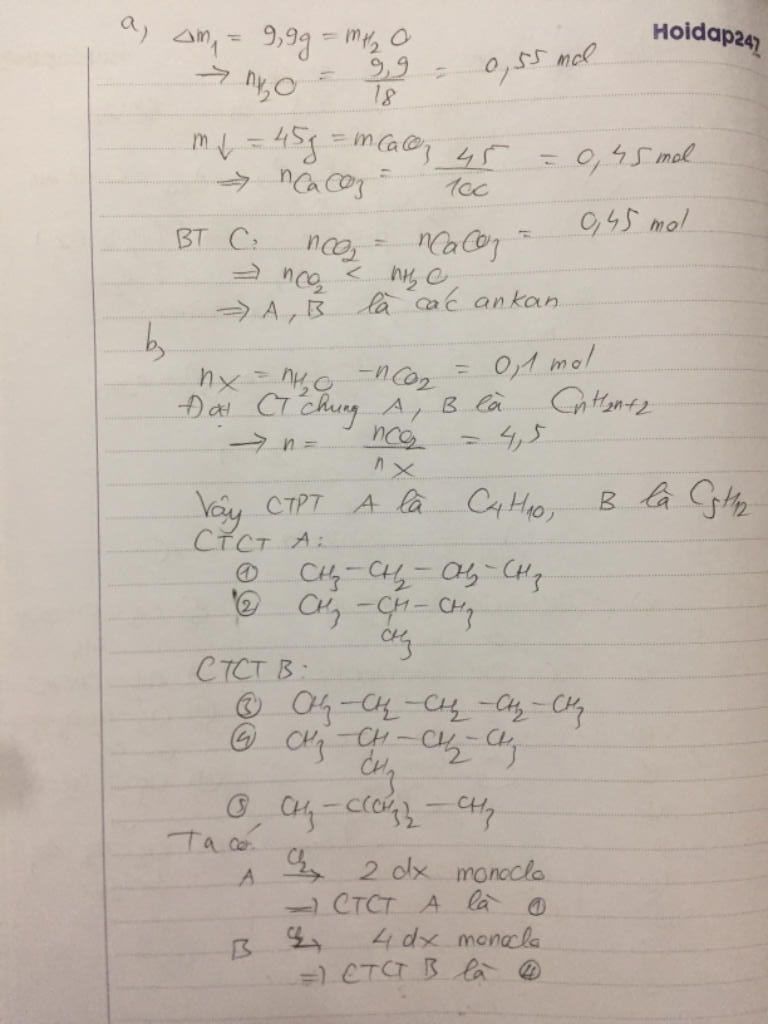 Hoidap247
a, Δm₁ = 9,9g = mH₂O
→ nH₂O = 9,9/18 = 0,55 mol
m↓ = 45g = mCaCO₃
⇒ nCaCO₃ = 45/100 = 0,45 mol
BT C: nCO₂ = nCaCO₃ = 0,45 mol
⇒ nCO₂ < nH₂O
⇒ A, B là các ankan
b,
nX = nH₂O - nCO₂ = 0,1 mol
Đặt CT chung A, B là CnH2n+2
→ n = nCO₂/nX = 4,5
Vậy CTPT A là C₄H₁₀, B là C₅H₁₂
CTCT A:
① CH₃ - CH₂ - CH₂ - CH₃
② CH₃ - CH - CH₃
CH₃
CTCT B:
③ CH₃ - CH₂ - CH₂ - CH₂ - CH₃
④ CH₃ - CH - CH₂ - CH₃
CH₃
⑤ CH₃ - C(CH₃)₂ - CH₃
Ta có:
A Cl₂→ 2 dx monoclo
⇒ CTCT A là ①
B Cl₂→ 4 dx monoclo
⇒ CTCT B là ④